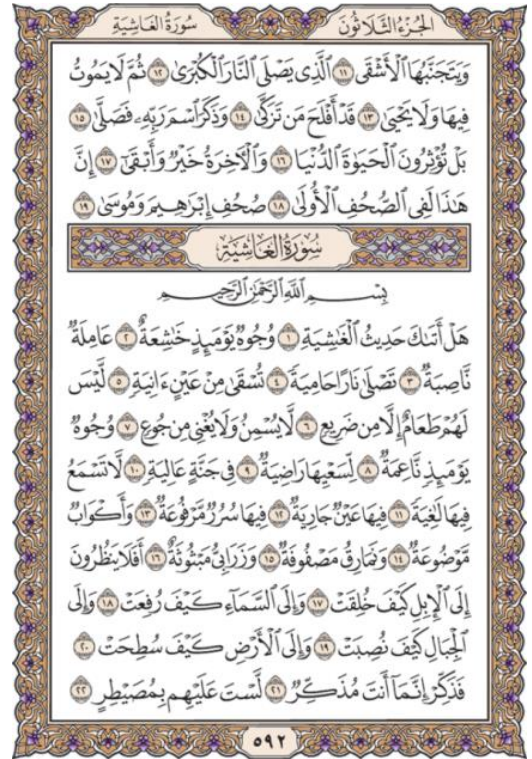 سُورَةُ الغَاشِيَةِ الجُزْءُ الثَّلَاثُونَ
وَيَتَجَنَّبُهَا ٱلْأَشْقَى ١١ ٱلَّذِى يَصْلَى ٱلنَّارَ ٱلْكُبْرَىٰ ١٢ ثُمَّ لَا يَمُوتُ
فِيهَا وَلَا يَحْيَىٰ ١٣ قَدْ أَفْلَحَ مَن تَزَكَّىٰ ١٤ وَذَكَرَ ٱسْمَ رَبِّهِۦ فَصَلَّىٰ ١٥
بَلْ تُؤْثِرُونَ ٱلْحَيَوٰةَ ٱلدُّنْيَا ١٦ وَٱلْـَٔاخِرَةُ خَيْرٌ وَأَبْقَىٰٓ ١٧ إِنَّ
هَـٰذَا لَفِى ٱلصُّحُفِ ٱلْأُولَىٰ ١٨ صُحُفِ إِبْرَٰهِيمَ وَمُوسَىٰ ١٩
سُورَةُ الغَاشِيَةِ
بِسْمِ ٱللَّهِ ٱلرَّحْمَـٰنِ ٱلرَّحِيمِ
هَلْ أَتَىٰكَ حَدِيثُ ٱلْغَـٰشِيَةِ ١ وُجُوهٌ يَوْمَئِذٍ خَـٰشِعَةٌ ٢ عَامِلَةٌ
نَّاصِبَةٌ ٣ تَصْلَىٰ نَارًا حَامِيَةً ٤ تُسْقَىٰ مِنْ عَيْنٍ ءَانِيَةٍ ٥ لَّيْسَ
لَهُمْ طَعَامٌ إِلَّا مِن ضَرِيعٍ ٦ لَّا يُسْمِنُ وَلَا يُغْنِى مِن جُوعٍ ٧ وُجُوهٌ
يَوْمَئِذٍ نَّاعِمَةٌ ٨ لِّسَعْيِهَا رَاضِيَةٌ ٩ فِى جَنَّةٍ عَالِيَةٍ ١٠ لَّا تَسْمَعُ
فِيهَا لَـٰغِيَةً ١١ فِيهَا عَيْنٌ جَارِيَةٌ ١٢ فِيهَا سُرُرٌ مَّرْفُوعَةٌ ١٣ وَأَكْوَابٌ
مَّوْضُوعَةٌ ١٤ وَنَمَارِقُ مَصْفُوفَةٌ ١٥ وَزَرَابِىُّ مَبْثُوثَةٌ ١٦ أَفَلَا يَنظُرُونَ
إِلَى ٱلْإِبِلِ كَيْفَ خُلِقَتْ ١٧ وَإِلَى ٱلسَّمَآءِ كَيْفَ رُفِعَتْ ١٨ وَإِلَى
ٱلْجِبَالِ كَيْفَ نُصِبَتْ ١٩ وَإِلَى ٱلْأَرْضِ كَيْفَ سُطِحَتْ ٢٠
فَذَكِّرْ إِنَّمَآ أَنتَ مُذَكِّرٌ ٢١ لَّسْتَ عَلَيْهِم بِمُصَيْطِرٍ ٢٢
٥٩٢